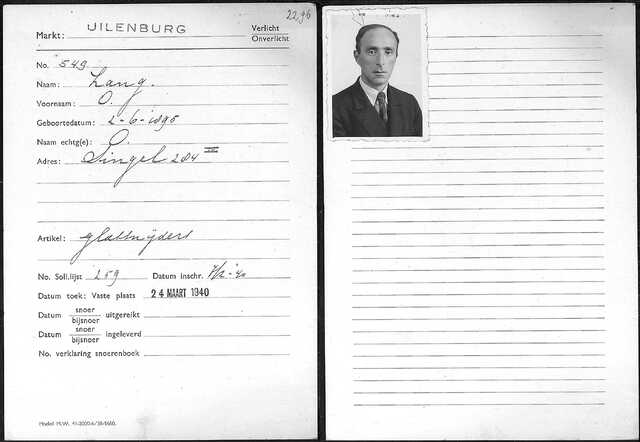 2296
Markt: UILENBURG Verlicht
Onverlicht
No. 549.
Naam: Lang.
Voornaam: O.
Geboortedatum: 2-6-1895
Naam echtg(e):
Adres: Singel 284
Artikel: glassnijders
No. Soll.lijst 259 Datum inschr.
Datum toek: Vaste plaats 24 MAART 1940
Datum snoer
bijsnoer uitgereikt
Datum snoer
bijsnoer ingeleverd
No. verklaring snoerenboek
Model M.W.